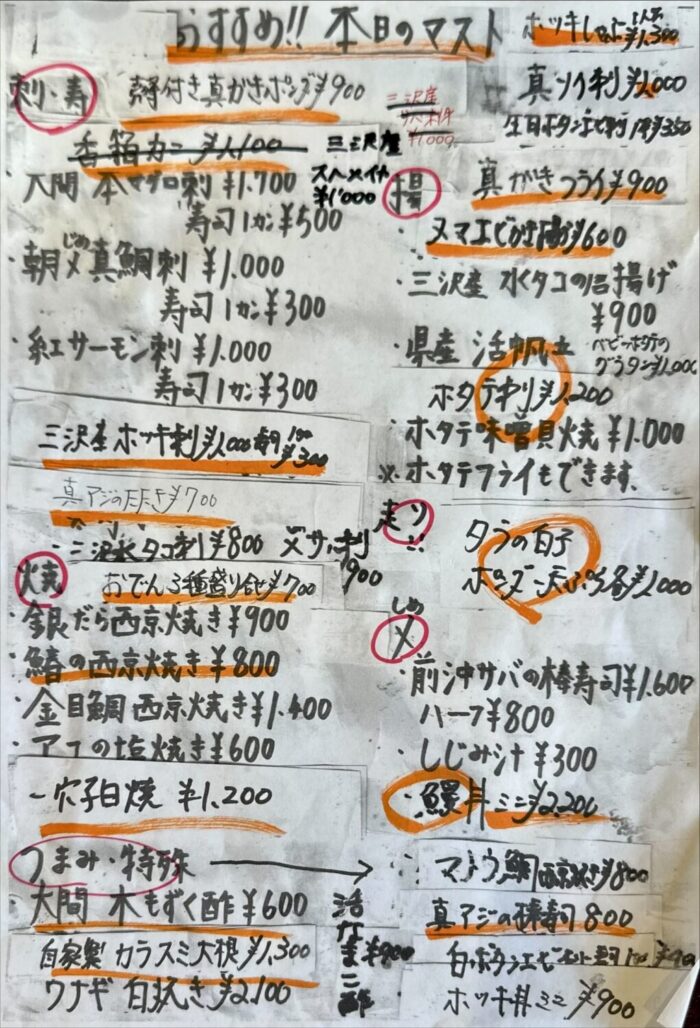 おすすめ!! 本日のマスト
ホッキしゃぶ 1人前 ¥1,300
刺・寿
殻付き真かきポンズ ¥900
三沢産
¥1000
真ソイ刺 ¥1,000
生白ボタンエビ刺 1本 ¥350
香箱カニ ¥1,100
三沢産
スルメイカ
¥1'000
・大間 本マグロ刺 ¥1.700
寿司1カン ¥500
揚
真がきフライ ¥900
・ヌマエビかき揚げ ¥600
じめ
・朝〆真鯛刺 ¥1.000
寿司1カン ¥300
・三沢産 水タコの唐揚げ
¥900
・紅サーモン刺 ¥1.000
寿司1カン ¥300
・県産 活帆立
ベビーホタテの
グラタン ¥1,000
ホタテ刺 ¥1,200
三沢産 ホッキ刺 ¥1,000 寿司 1カン ¥300
・ホタテ味噌貝焼 ¥1.000
※ホタテフライもできます。
真アジのタタキ ¥700
・三沢水タコ刺 ¥800 〆サバ刺
900
走り!!
タラの白子
ポンズ・天ぷら各 ¥1000
焼
おでん3種盛り合せ ¥700
・銀だら西京焼き ¥900
・鰆の西京焼き ¥800
・金目鯛西京焼き ¥1.400
の塩焼き ¥600
しめ
〆
・前沖サバの棒寿司 ¥1.600
ハーフ ¥800
・しじみ汁 ¥300
・鰻丼 ミニ ¥2,200
一穴子白焼 ¥1,200
つまみ・特殊 →
マトウ鯛西京焼き ¥800
・大間 木もずく酢 ¥600
活なまこ酢 ¥900
真アジの棒寿司 800
自家製 カラスミ大根 ¥1,300
白ボタンエビ
ウナギ白焼き ¥2100
ホッキ丼ミニ ¥900